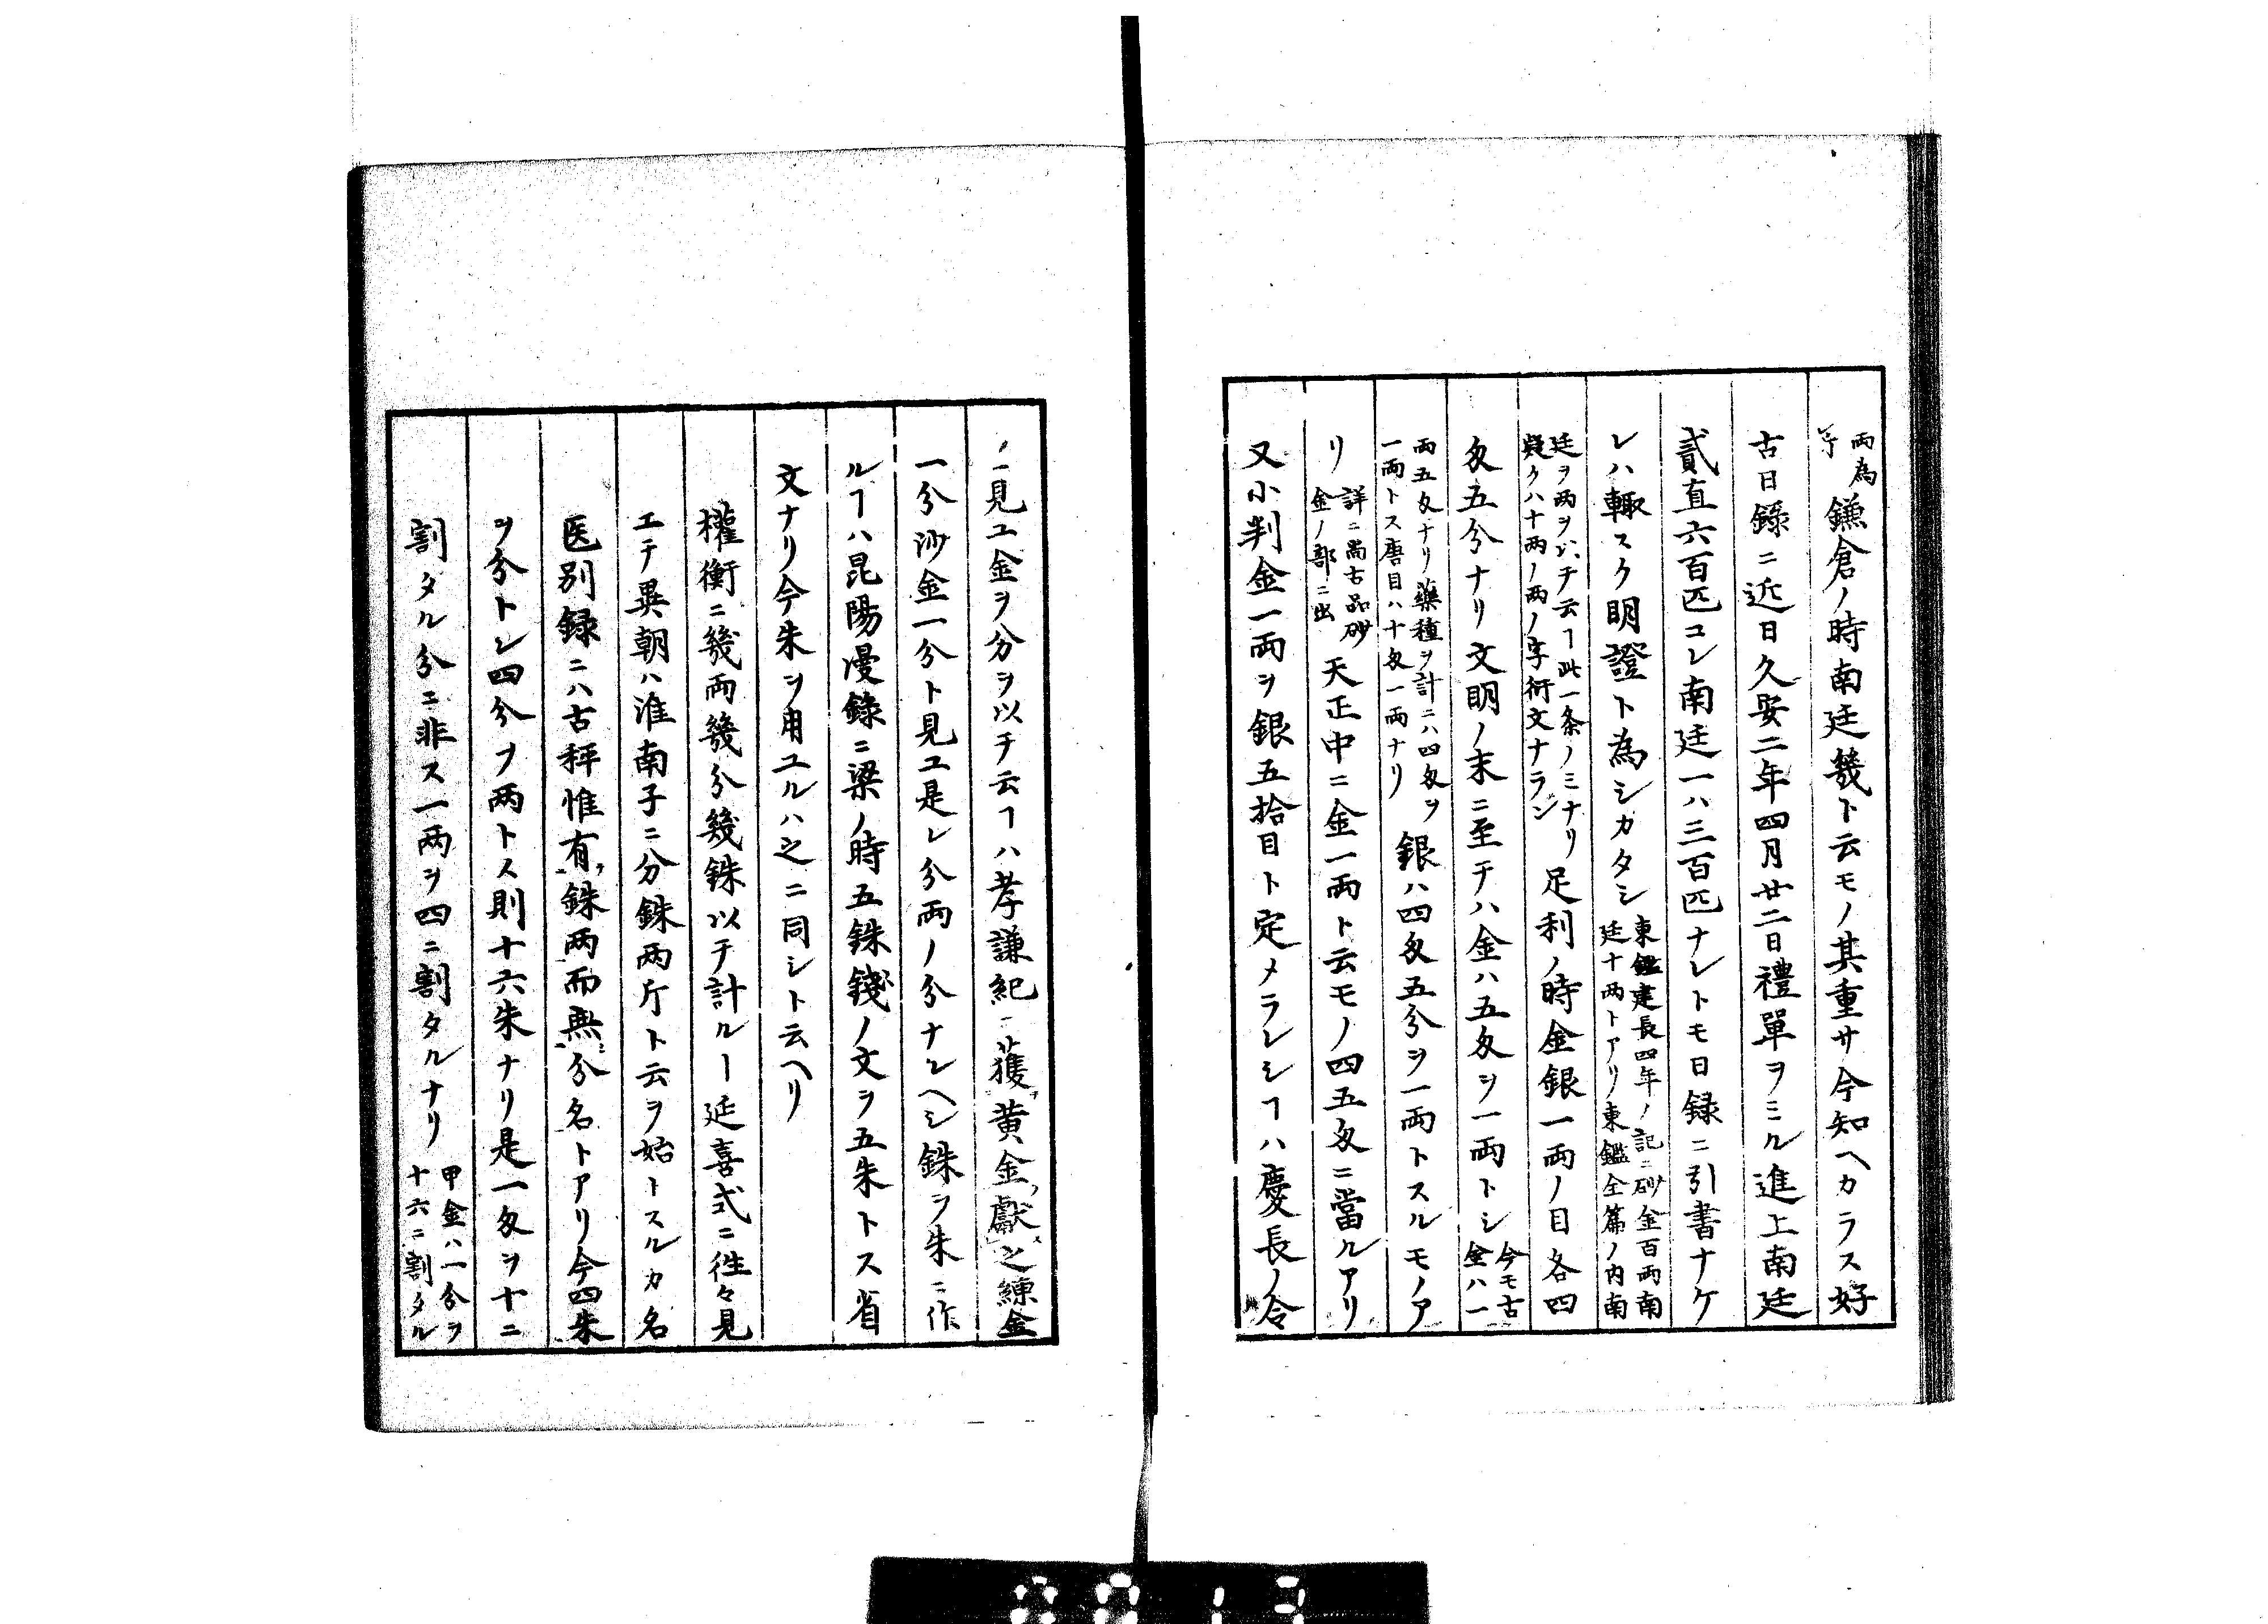 両為
等
鎌倉ノ時南廷幾ト云モノ其重サ今知ヘカラス好
古日録ニ近日久安二年四月廿二日禮單ヲミル進上南廷
貳直六百匹コレ南廷一ハ三百匹ナレトモ日録ニ引書ナケ
レハ輙スク明證ト為シカタシ
東鑑建長四年ノ記ニ砂金百両南
廷十両トアリ東鑑全篇ノ内南
廷ヲ両ヲ以テ云ヿ此一条ノミナリ
疑クハ十両ノ両ノ字衍文ナラン
足利ノ時金銀一両ノ目各四
匁五分ナリ文明ノ末ニ至テハ金ハ五匁ヲ一両トシ
今モ古
金ハ一
両五匁ナリ藥種ヲ計ニハ四匁ヲ
一両トス唐目ハ十匁一両ナリ
銀ハ四匁五分ヲ一両トスルモノア
リ
詳ニ尚古品砂
金ノ部ニ出
天正中ニ金一両ト云モノ四五匁ニ當ルアリ
又小判金一両ヲ銀五拾目ト定メラレシヿハ慶長ノ令
ノ見ユ金ヲ分ヲ以テ云ヿハ孝謙紀ニ獲黄金獻之練金
一分沙金一分ト見ユ是レ分両ノ分ナルヘシ銖ヲ朱ニ作
ルヿハ昆陽漫錄ニ梁ノ時五銖錢ノ文ヲ五朱トス省
文ナリ今朱ヲ用ユルハ之ニ同シト云ヘリ
權衡ニ幾両幾分幾銖以テ計ルヿ延喜式ニ徃々見
エテ異朝ハ淮南子ニ分銖両斤ト云ヲ始トスルカ名
医別録ニハ古秤惟有銖両而無分名トアリ今四朱
ヲ分トシ四分ヲ両トス則十六朱ナリ是一匁ヲ十ニ
割タル分ニ非ス一両ヲ四ニ割タルナリ
甲金ハ一分ヲ
十六ニ割タル
0013